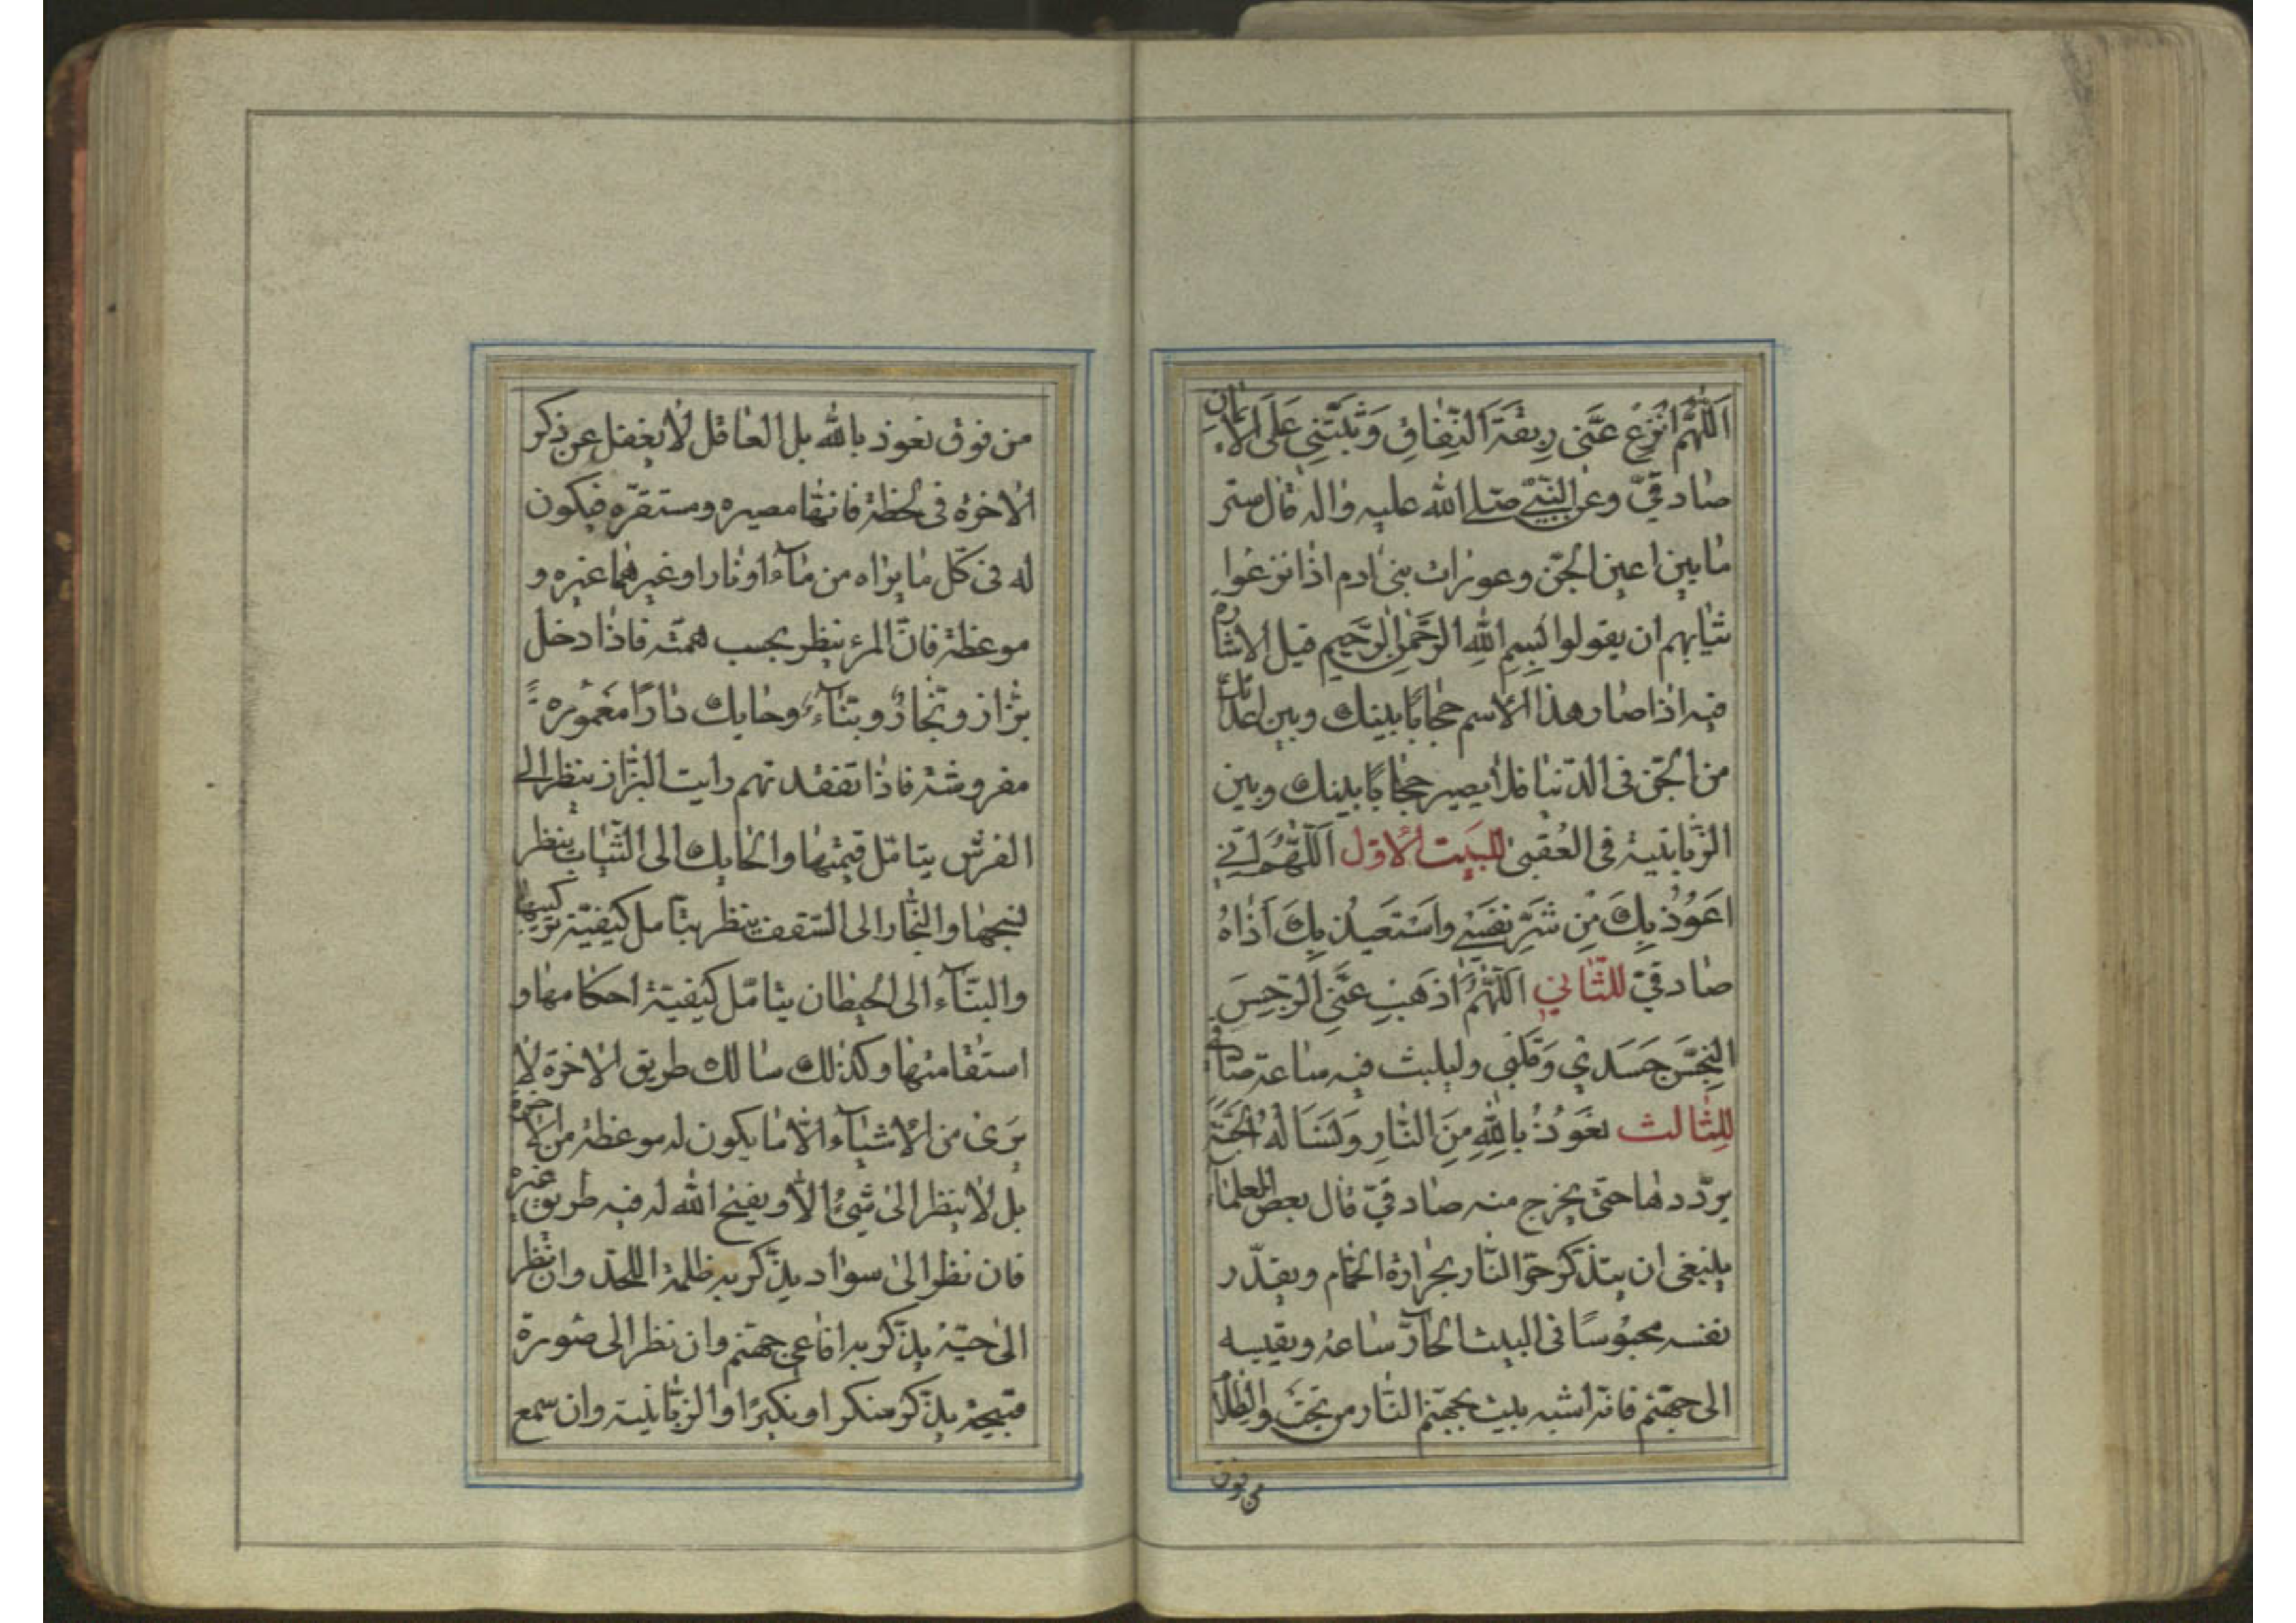 اَللّٰهُمَّ انْزِعْ عَنّى رِبِقْةَ النِّفٰاقِ وَثَبِّتْنِى عَلَى الْاٖيمٰانِ
صٰادقىّ وعن النّبىّ صلى الله عليه واله قال ستر
مٰا بين اعين الجنّ وعورات بنى ادم اذا نزعوا
ثيٰابهم ان يقولوا بِسْمِ اللّٰهِ الرَّحْمٰنِ الرَّحيمِ قيل الاشارة
فيه اذا صار هذا الاسم حجابًا بينك وبين اعدائك
من الجنّ فى الدّنيا فلا يصير حجابًا بينك وبين
الزّبانية فى العُقبى للبيت الاوّل اَللّٰهُمَّ اِنّى
اَعُوذُ بِكَ مِنْ شَرِّ نَفْسى وَاَسْتَعيذُ بِكَ اَذٰاهُ
صٰادقىّ للثّانى اَللّٰهُمَّ اَذْهِبْ عَنِّى الرِّجْسَ
النِّجْسَ جَسَدى وَقَلْبى وليلبث فيه ساعة صٰادقى
للثالث نَعُوذُ بِاللّٰهِ مِنَ النّٰارِ وَنَسْاَلُهُ الْجَنَّةَ
يردّدها حتى يخرج منه صٰادقىّ قال بعض العلمٰاء
ينبغى ان يتذكّر حرّ النّار بحرارة الحمّام ويقدّر
نفسه محبوسًا فى البيت الحارّ ساعة ويقيسه
الى جهنّم فانّه اشبه بيت بجهنّم النّار من تحت والظلام
من فوق
من فوق نعوذ بالله بل العاقل لا يغفل عن ذكر
الاخرة فى لحظة فانّها مصيره ومستقرّه فيكون
له فى كلّ ما يراه من ماء او نار او غيرهما عبرة و
موعظة فانّ المرء ينظر بحسب همّته فاذا دخل
بزّاز ونجّار وبنّاء وحايك دارًا معمورة
مفروشة فاذا تفقّدتهم رايت البزّاز ينظر الى
الفرش يتامّل قيمتها والحايك الى الثّياب ينظر
نسجها والنّجّار الى السّقف ينظر يتامل كيفيّة تركيبها
والبنّاء الى الحيطان يتامّل كيفيّة احكامها و
استقامتها وكذلك سالك طريق الاخرة لا
يرى من الاشياء الّا ما يكون له موعظة من الاخرة
بل لا ينظر الى شىء الّا ويفتح الله له فيه طريق عبرة
فان نظر الى سواد يذكّر به ظلمة اللحد وان نظر
الى حيّة يذكّر به افاعى جهنّم وان نظر الى صورة
قبيحة يذكّر منكرا ونكيرًا والزّبانية وان سمع